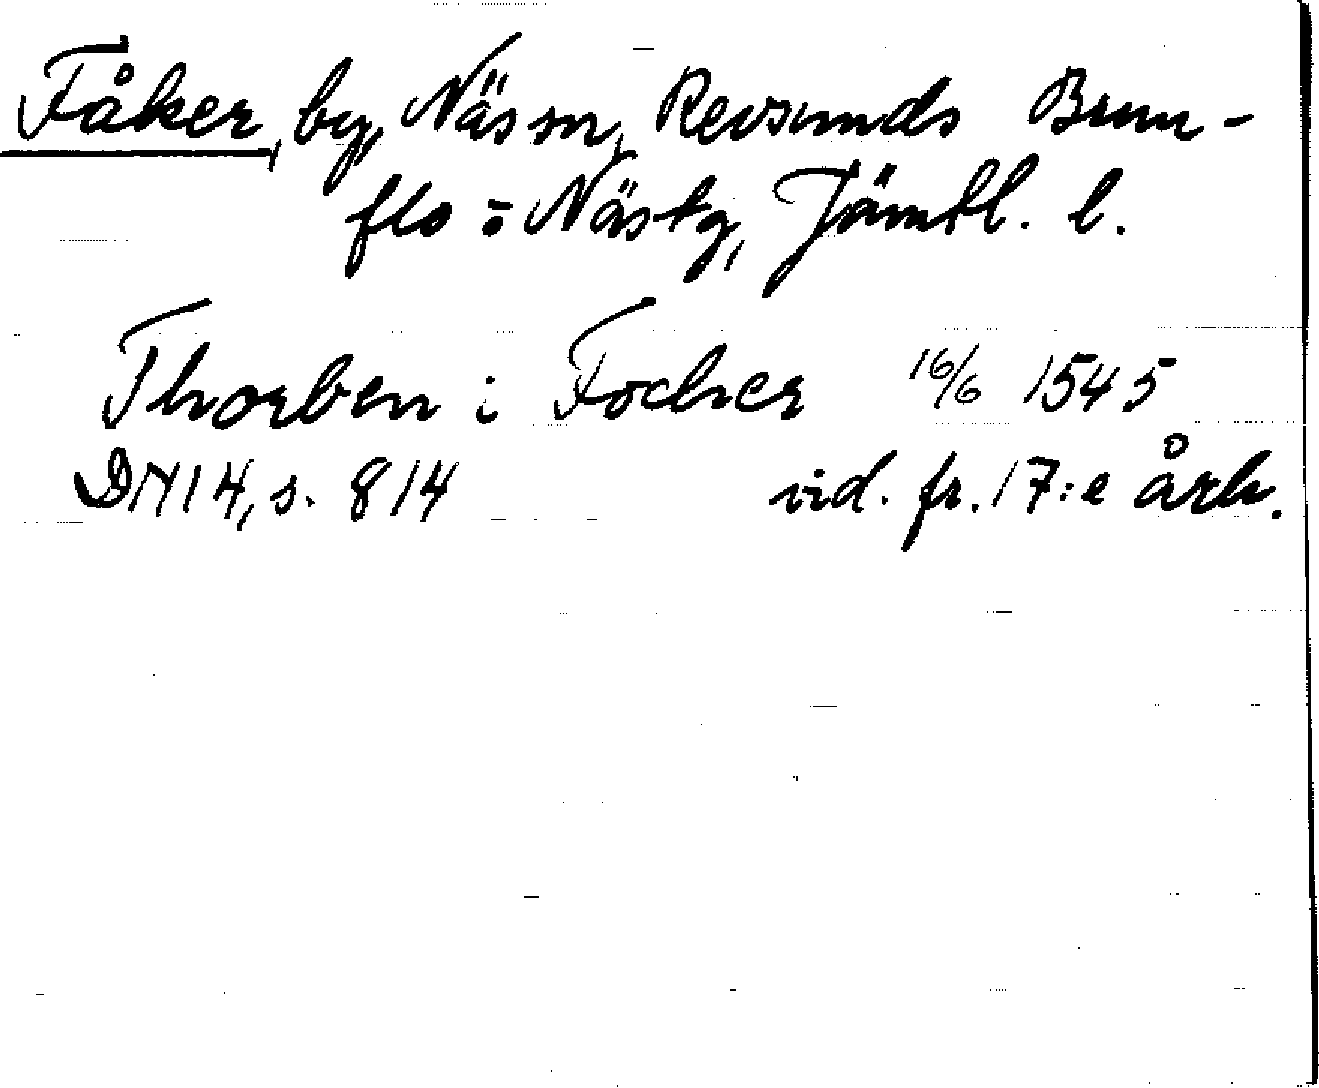 Fåker, by, Näs sn, Revsunds Brun-
flo o Näs tg, Jämtl. l.
Thorben i Focher 16/6 1545
DN 14, s. 814 vid. fr. 17:e årh.